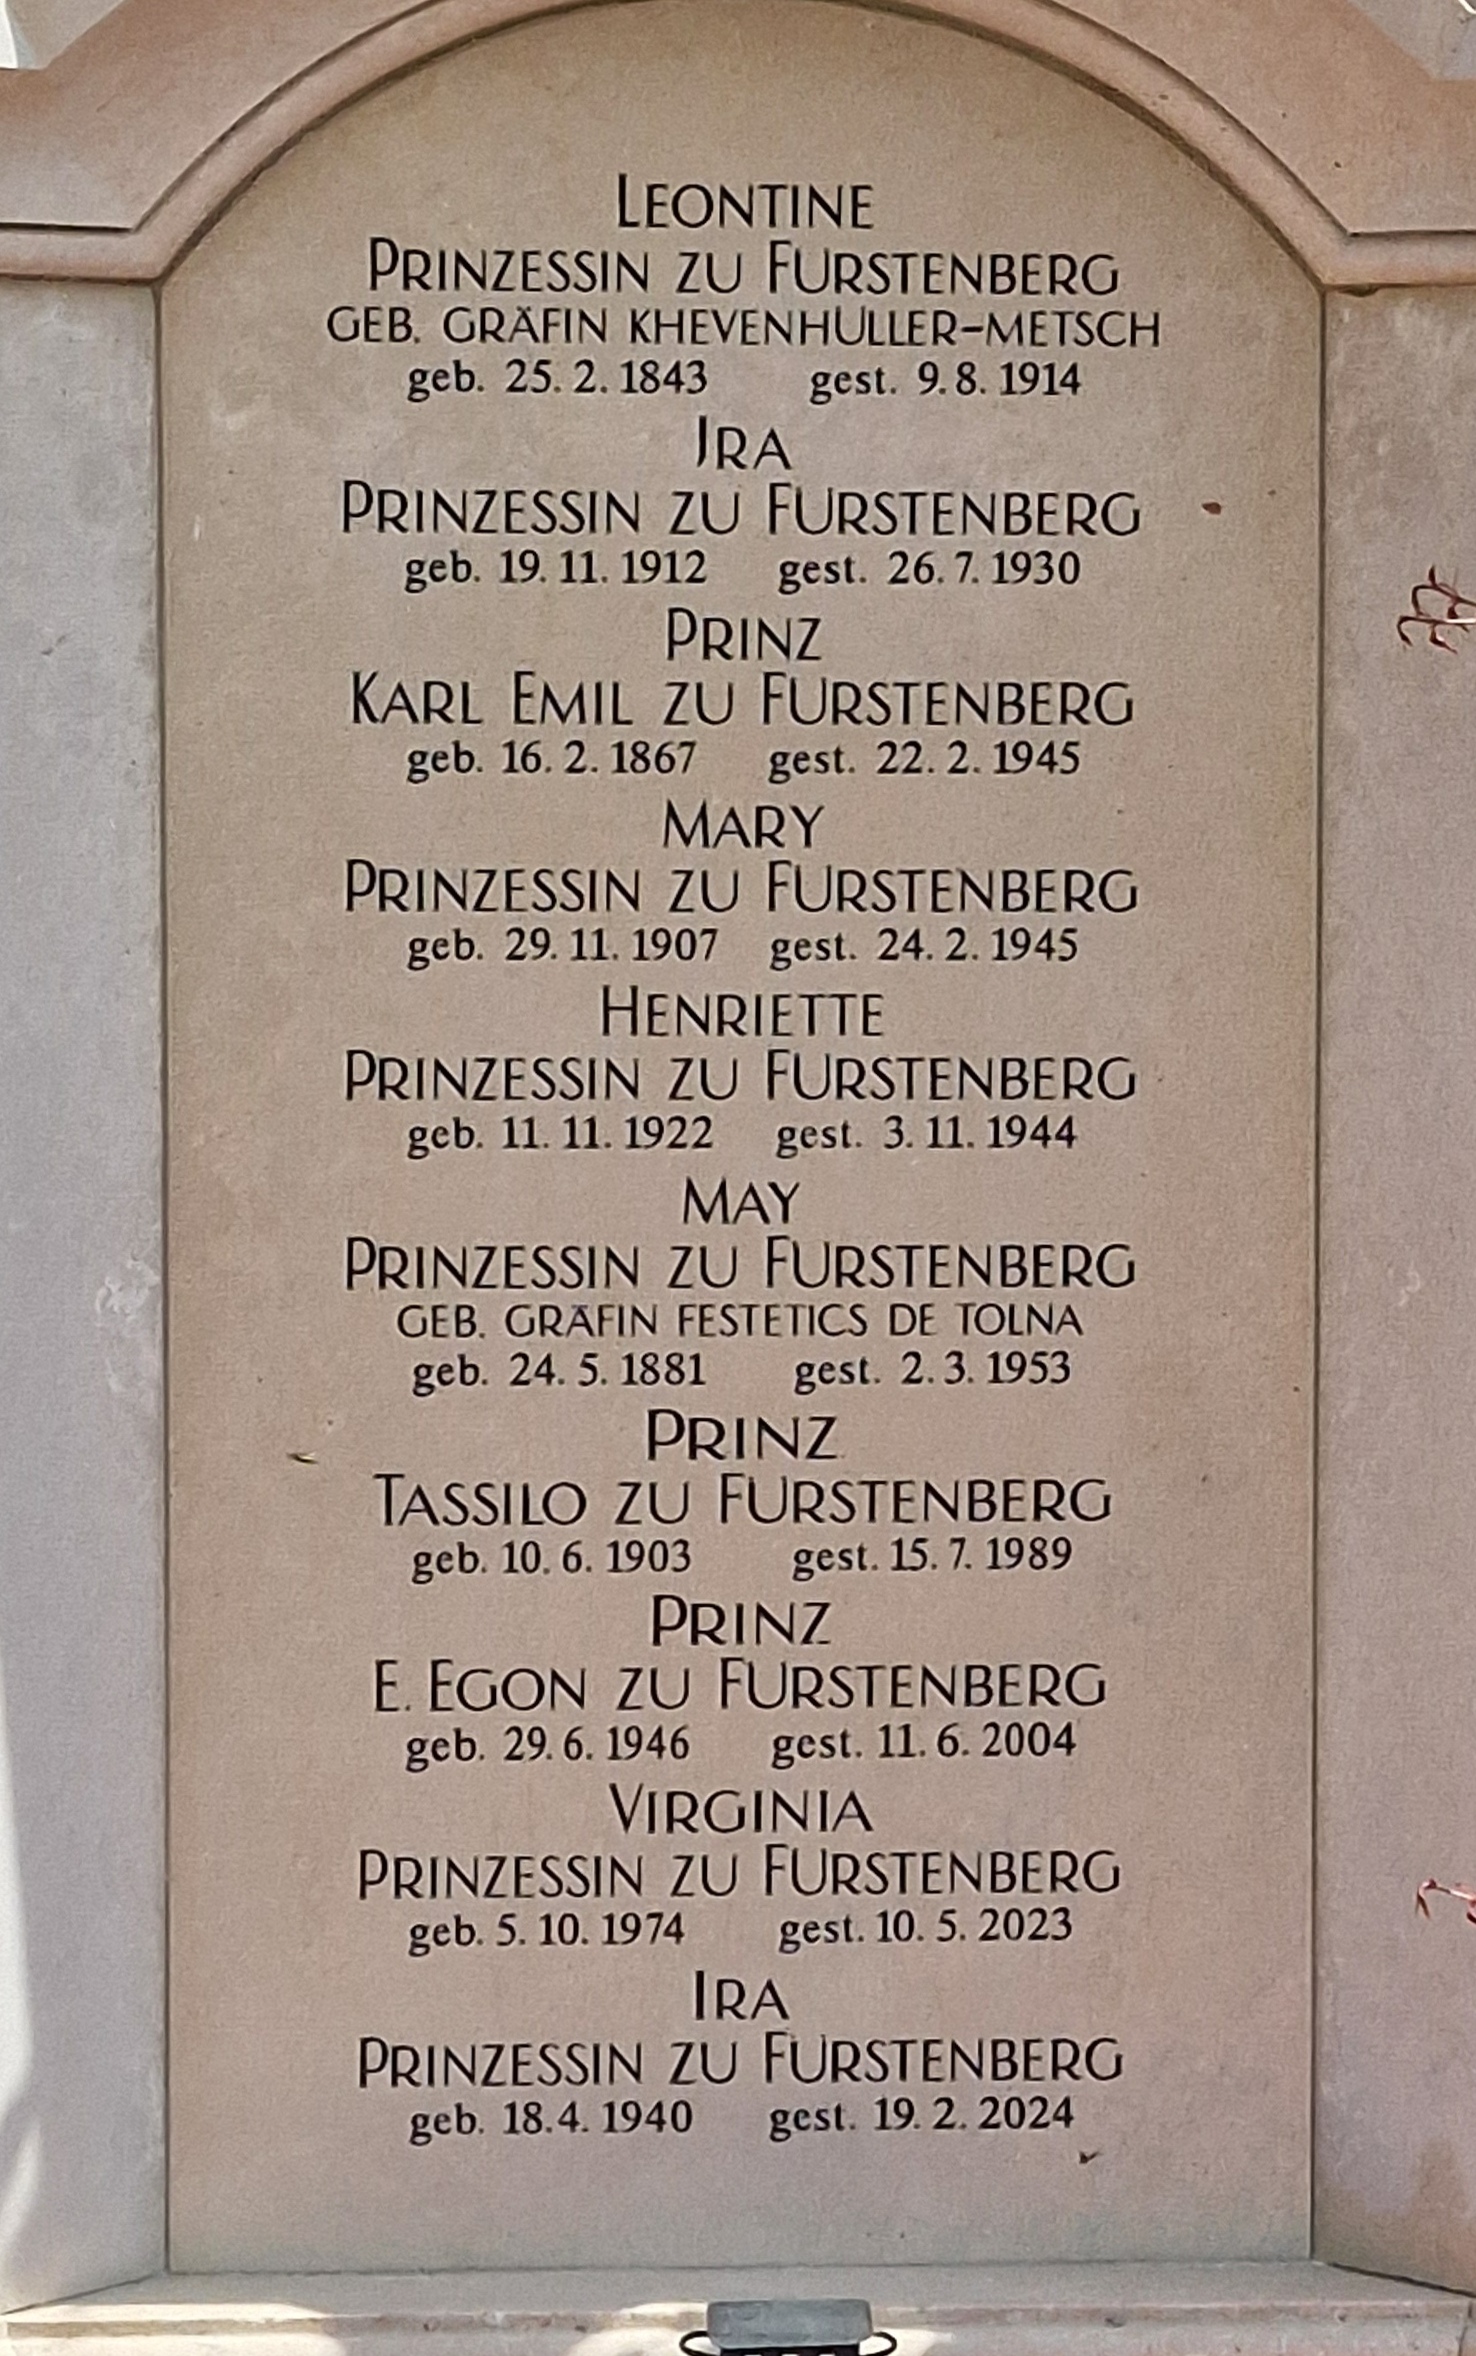 LEONTINE
PRINZESSIN ZU FÜRSTENBERG
GEB. GRÄFIN KHEVENHÜLLER-METSCH
geb. 25. 2. 1843 gest. 9. 8. 1914
IRA
PRINZESSIN ZU FÜRSTENBERG
geb. 19. 11. 1912 gest. 26. 7. 1930
PRINZ
KARL EMIL ZU FÜRSTENBERG
geb. 16. 2. 1867 gest. 22. 2. 1945
MARY
PRINZESSIN ZU FÜRSTENBERG
geb. 29. 11. 1907 gest. 24. 2. 1945
HENRIETTE
PRINZESSIN ZU FÜRSTENBERG
geb. 11. 11. 1922 gest. 3. 11. 1944
MAY
PRINZESSIN ZU FÜRSTENBERG
GEB. GRÄFIN FESTETICS DE TOLNA
geb. 24. 5. 1881 gest. 2. 3. 1953
PRINZ
TASSILO ZU FÜRSTENBERG
geb. 10. 6. 1903 gest. 15. 7. 1989
PRINZ
E. EGON ZU FÜRSTENBERG
geb. 29. 6. 1946 gest. 11. 6. 2004
VIRGINIA
PRINZESSIN ZU FÜRSTENBERG
geb. 5. 10. 1974 gest. 10. 5. 2023
IRA
PRINZESSIN ZU FÜRSTENBERG
geb. 18. 4. 1940 gest. 19. 2. 2024